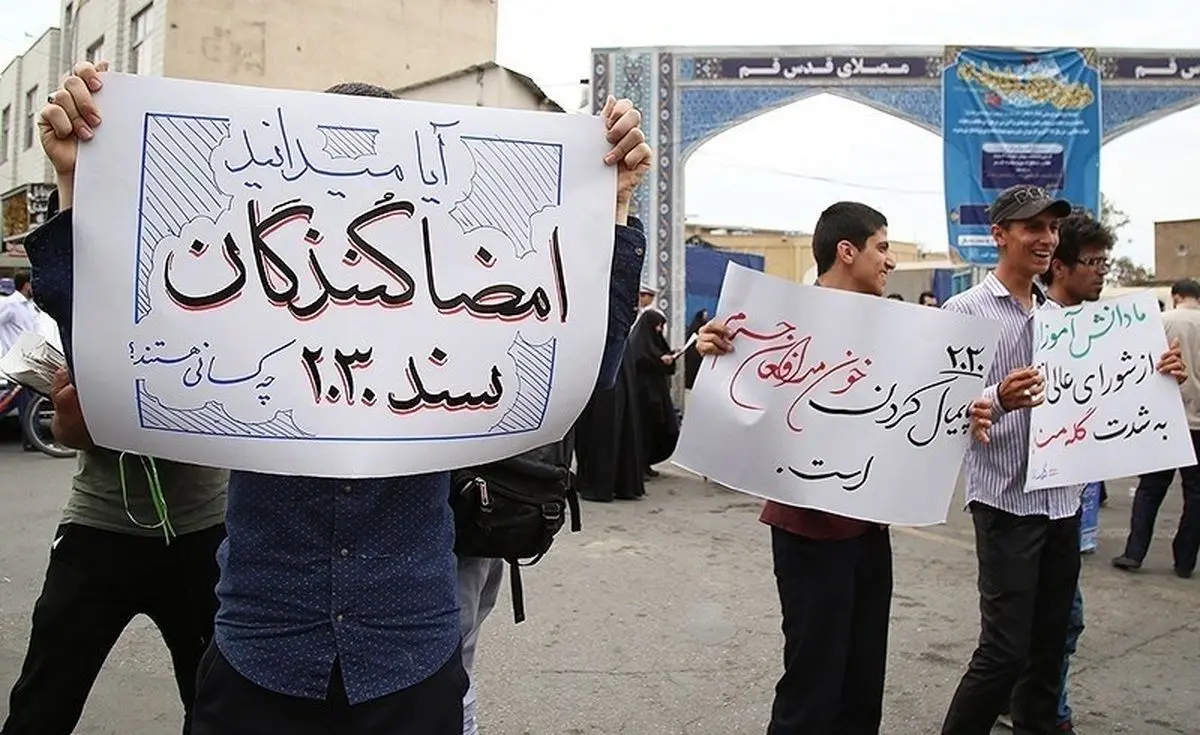 مصلای قدس قم
سی قم
آیا میدانید
امضا کنندگان
سند ۲۰۳۰ چه کسانی هستند؟
۲۰۳۰
پایمال کردن خون مدافعان حرم
است.
ما دانش آموزا
از شورای عالی
به شدت گله من